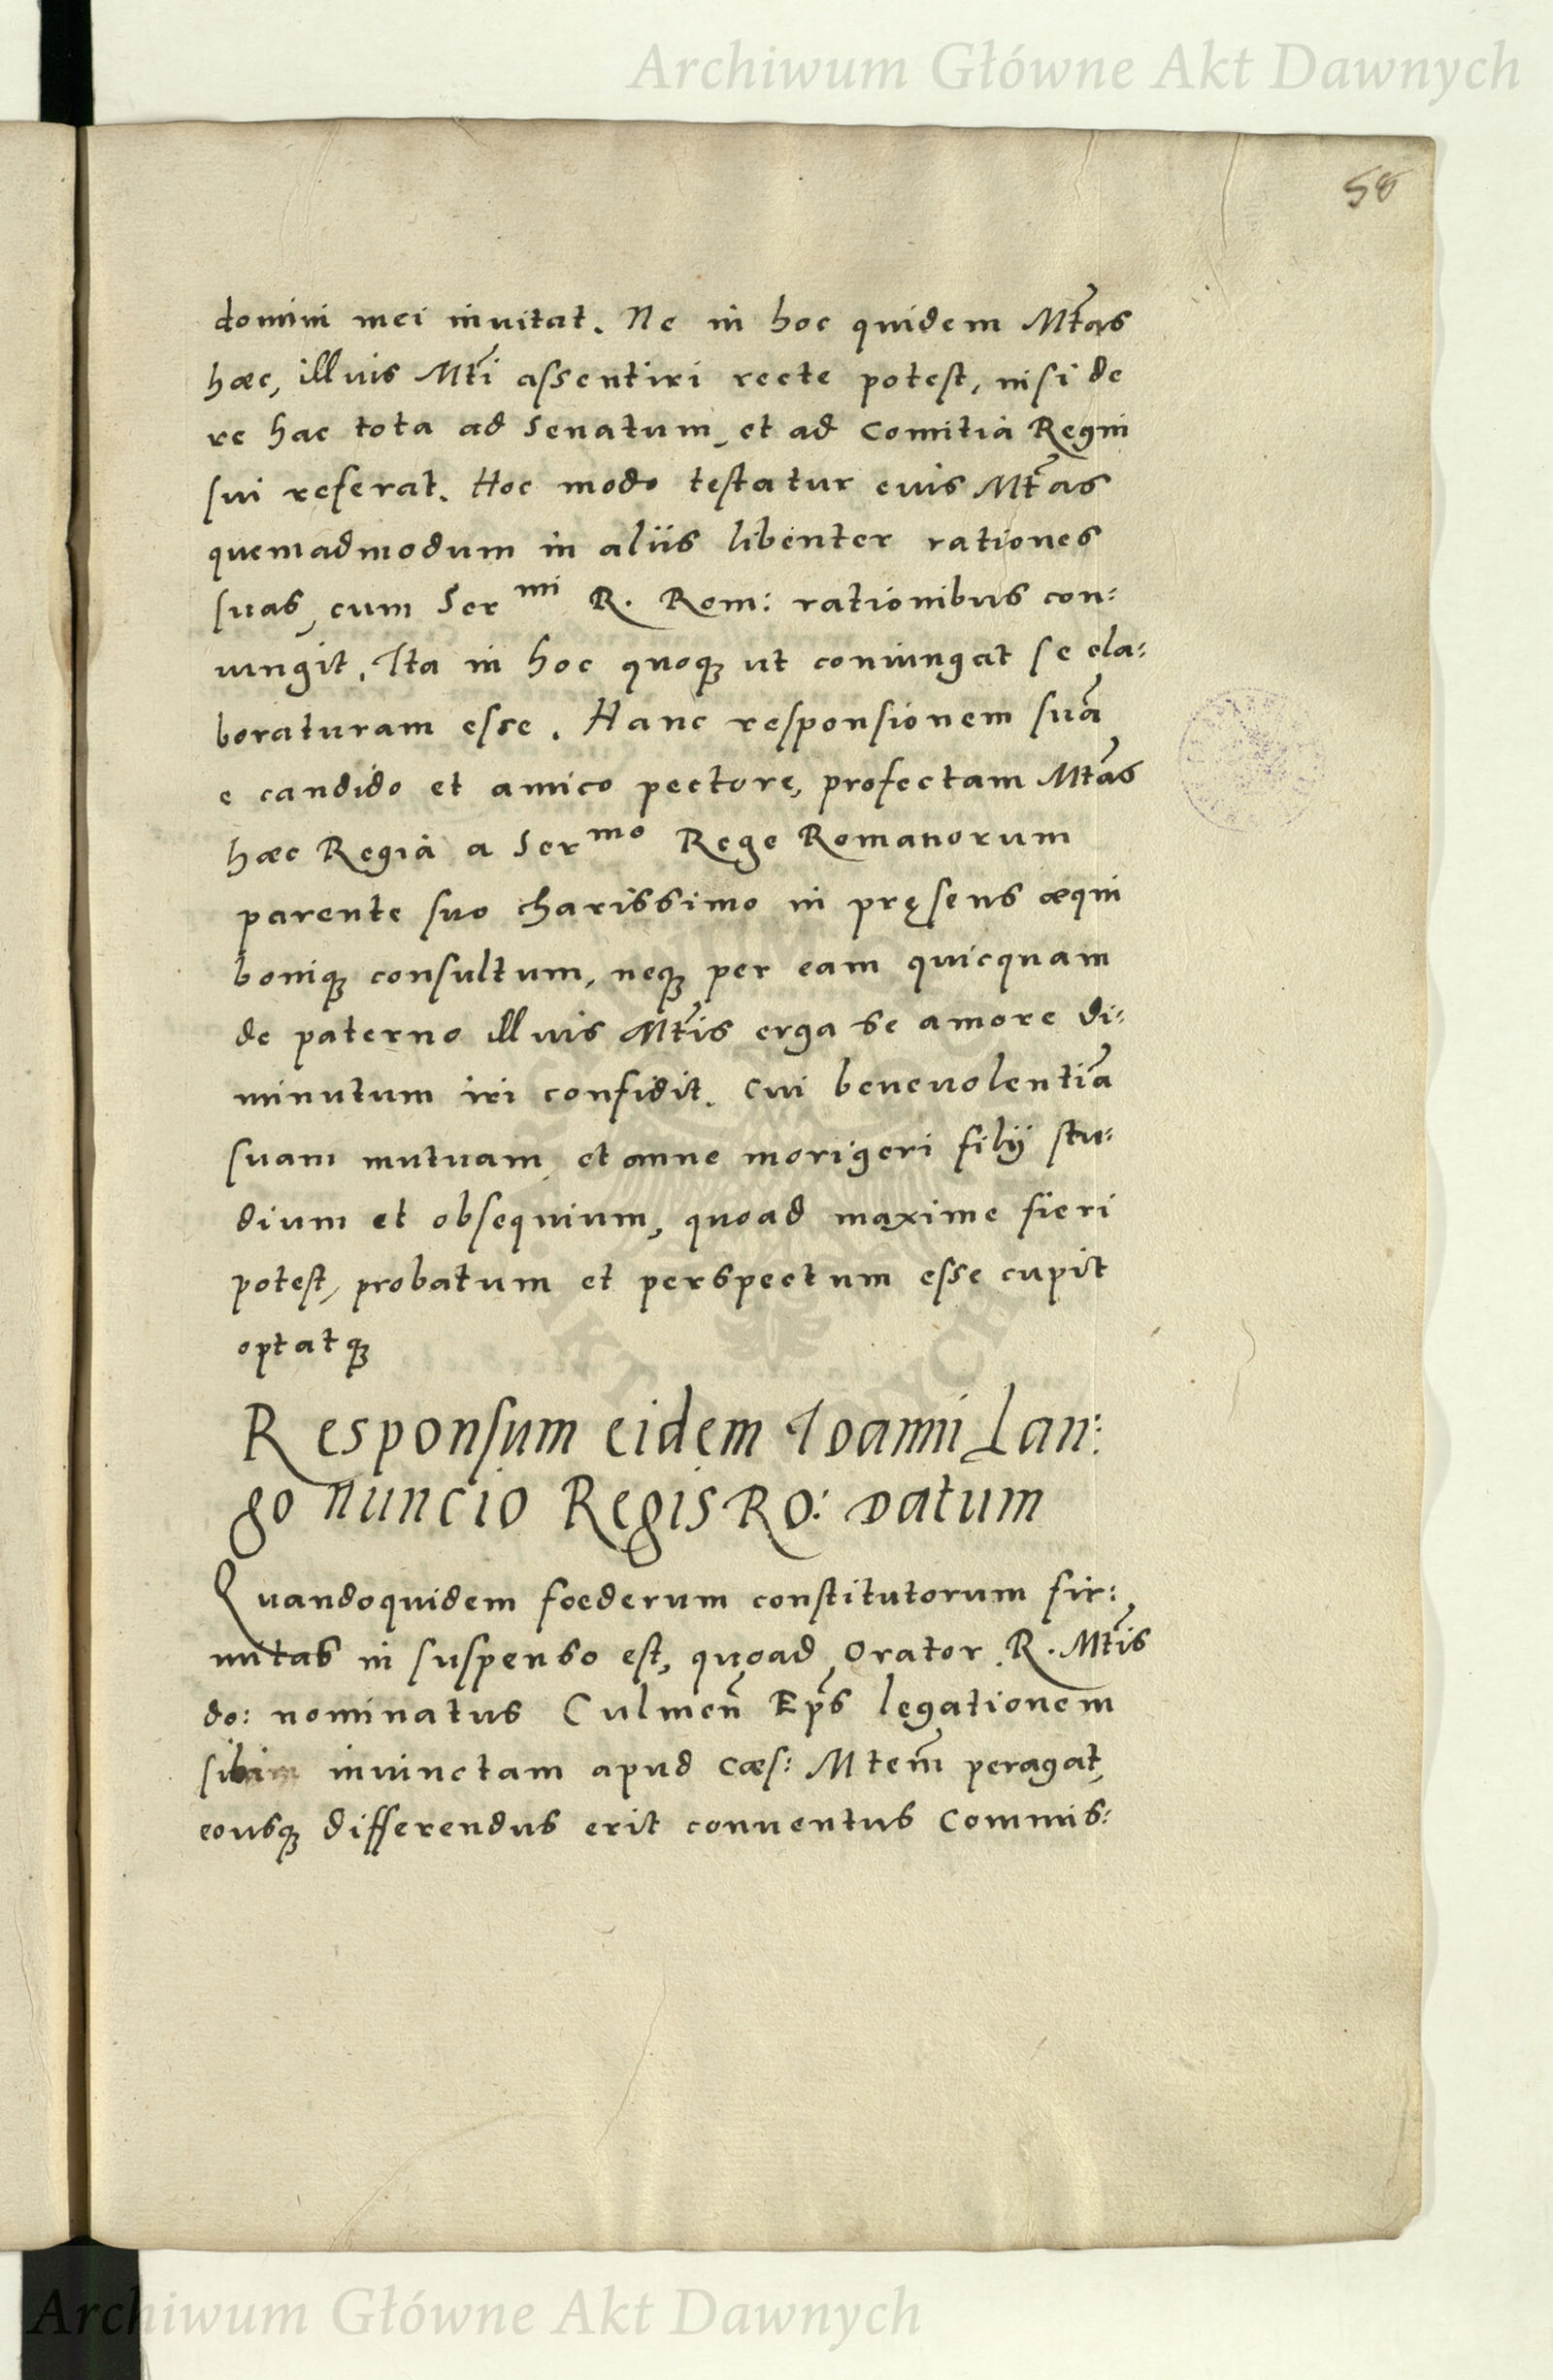 Archiwum Główne Akt Dawnych
58
domini mei inuitat. Ne in hoc quidem Mt̃as
hæc, illius Mt̃i assentiri recte potest, nisi de
re hac tota ad Senatum, et ad Comitia Regni
sui referat. Hoc modo testatur eius Mt̃as
quemadmodum in aliis libenter rationes
suas, cum Ser mi R. Rom: rationibus con:
iungit, Ita in hoc quoqꝫ ut coniungat se ela:
boraturam esse. Hanc responsionem suã
e candido et amico pectore, profectam Mt̃as
hæc Regia a Ser mo Rege Romanorum
parente suo charissimo in pręsens æqui
boniqꝫ consultum, neqꝫ per eam quicquam
de paterno illius Mt̃is erga se amore di:
minutum iri confidit. Cui beneuolentiã
suam mutuam, et omne morigeri filÿ stu:
dium et obsequium, quoad maxime fieri
potest, probatum et perspectum esse cupit
optatqꝫ
Responsum eidem Ioanni Lan:
go nuncio Regis RO: Datum
Quandoquidem foederum constitutorum fir:
mitas in suspenso est, quoad Orator R. Mt̃is
do: nominatus Culmeñ Ep̃s legationem
sibi iniunctam apud Cæs: Mtem̃ peragat,
eousqꝫ differendus erit conuentus Commis:
Archiwum Główne Akt Dawnych